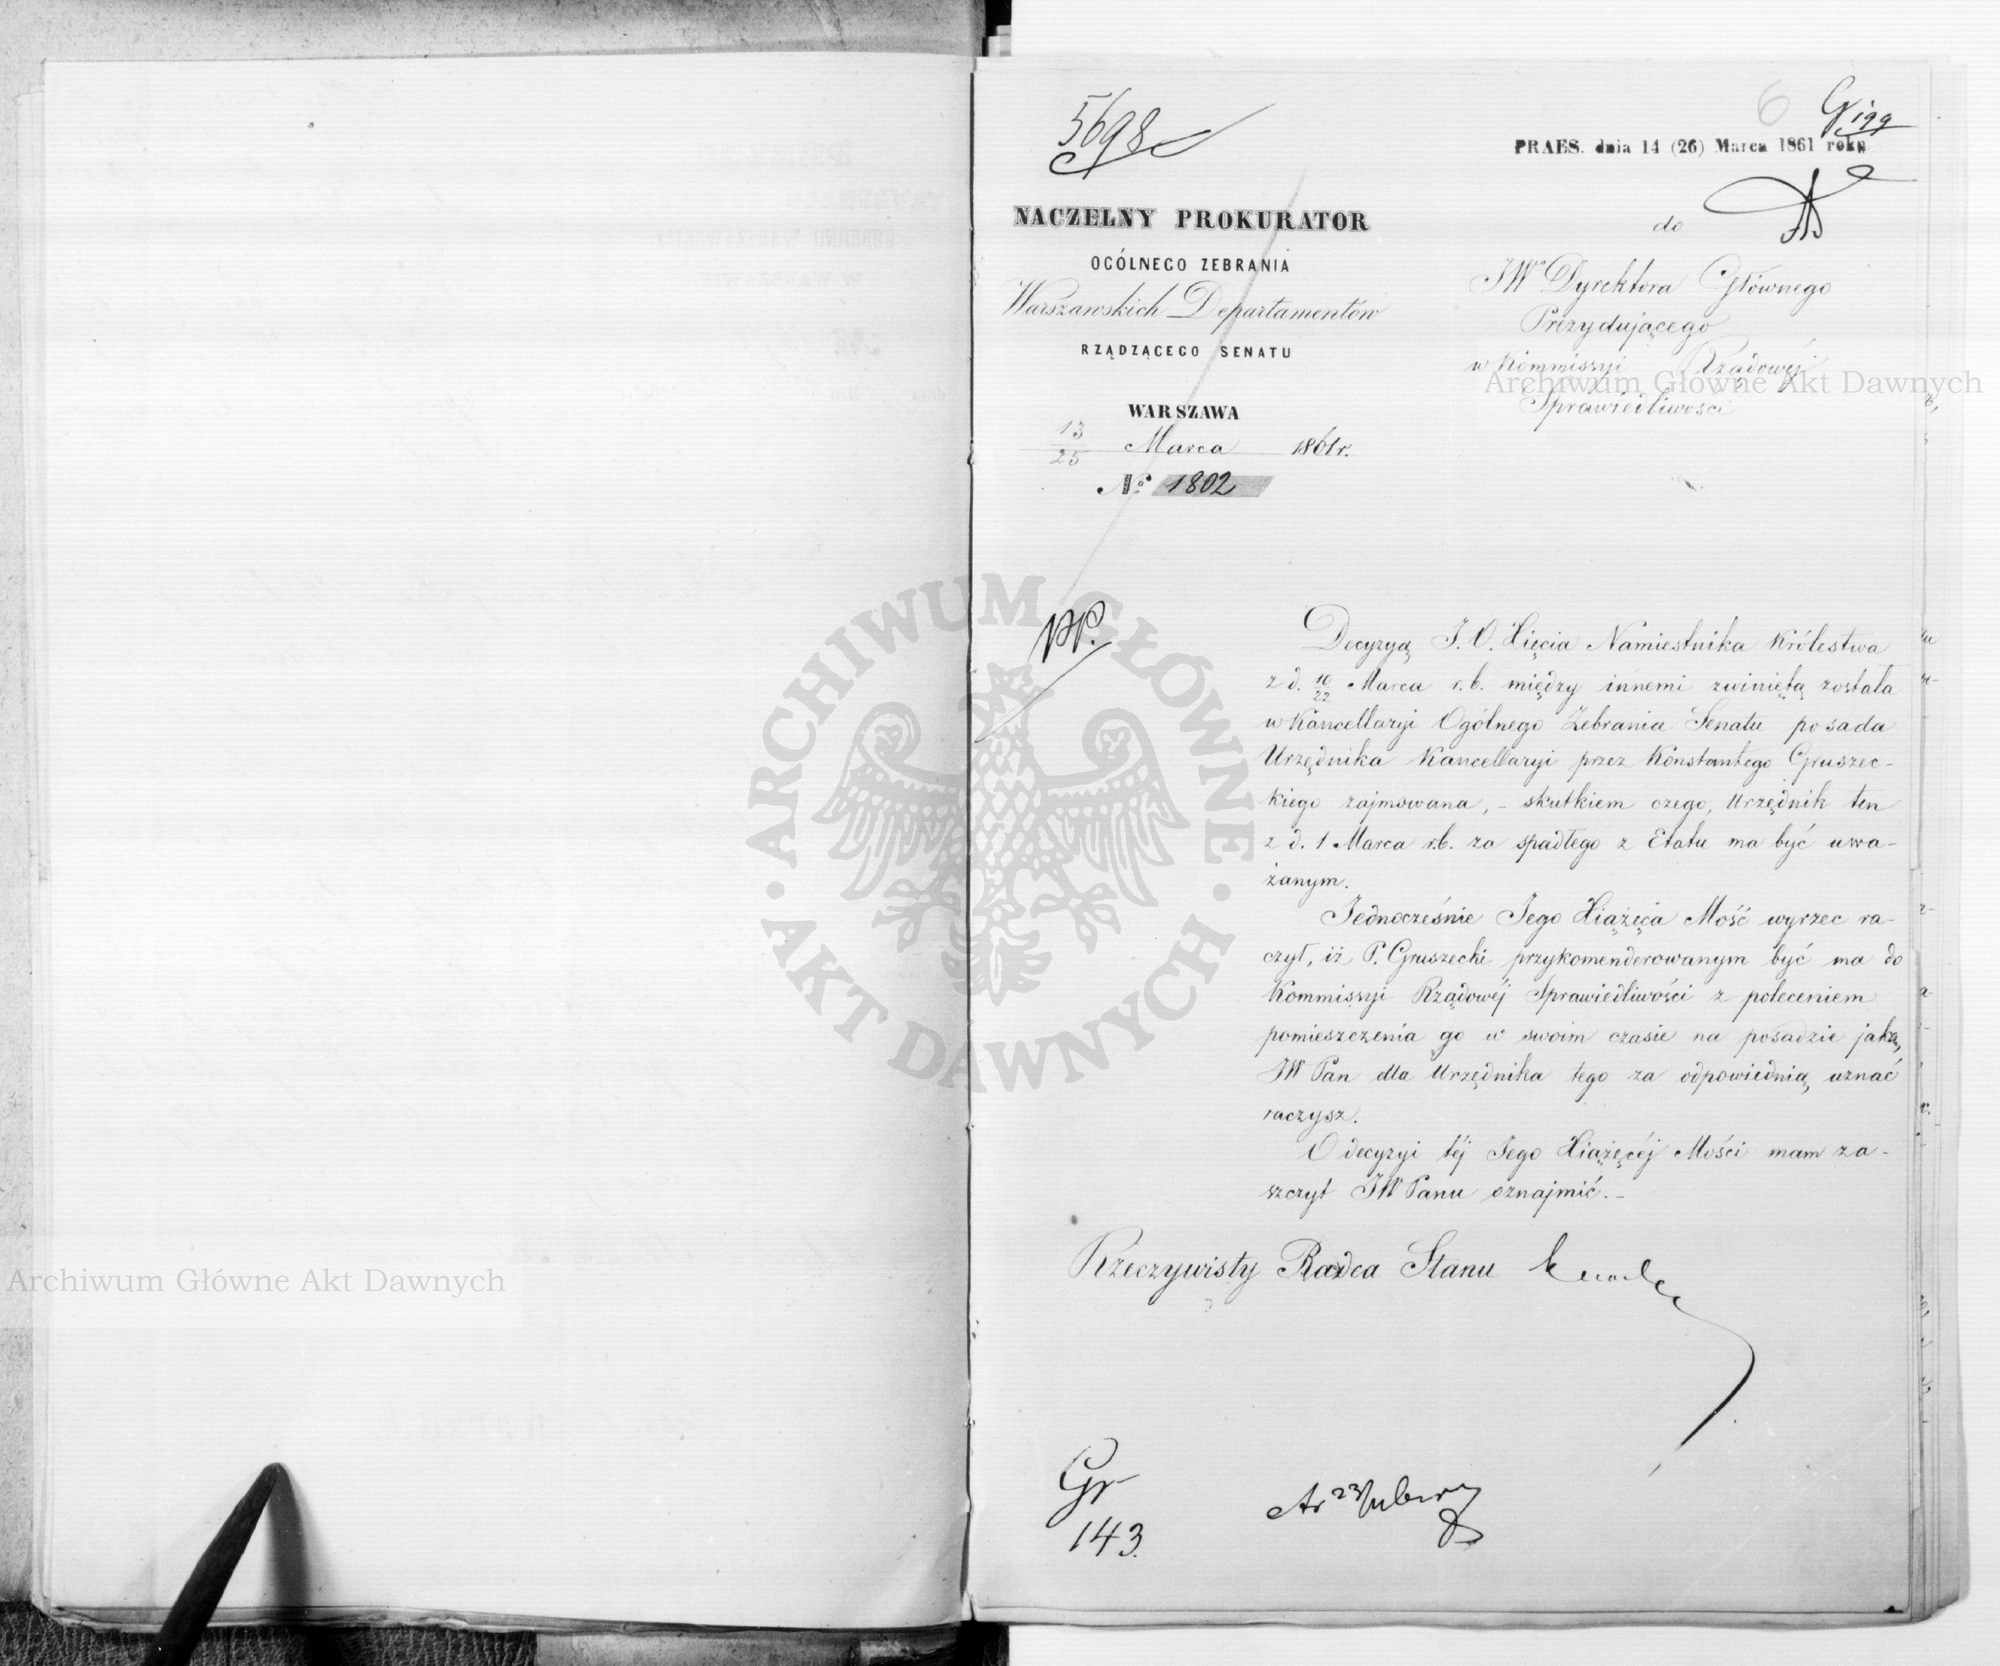 5698
6
PRAES. dnia 14 (26) Marca 1861 roku
NACZELNY PROKURATOR
OGÓLNEGO ZEBRANIA
Warszawskich Departamentów
RZĄDZĄCEGO SENATU
WARSZAWA
13/25 Marca 1861 r.
No 1802
do
JW Dyrektora Głównego
Prezydującego
w Kommissyi Rządowéj
Sprawiedliwości
pp.
Decyzyą J. O. Xięcia Namiestnika Królestwa
z d. 10/22 Marca r. b. między innemi zwiniętą została
w Kancellaryi Ogólnego Zebrania Senatu posada
Urzędnika Kancellaryi przez Konstantego Gruszec-
kiego zajmowana, - skutkiem czego, Urzędnik ten
z d. 1 Marca r.b. za spadłego z Etatu ma być uwa-
żanym.
Jednocześnie Jego Xiążęca Mość wyrzec ra-
czył, iż P. Gruszecki przykomenderowanym być ma do
Kommissyi Rządowéj Sprawiedliwości z poleceniem
pomieszczenia go w swoim czasie na posadzie jaką,
JW Pan dla Urzędnika tego za odpowiednią, uznać
raczysz.
O decyzyi téj Jego Xiążęcéj Mości mam za-
szczyt JW Panu oznajmić. -
Rzeczywisty Radca Stanu
Gr
143.
Archiwum Główne Akt Dawnych
Archiwum Główne Akt Dawnych
ARCHIWUM GŁÓWNE
AKT DAWNYCH